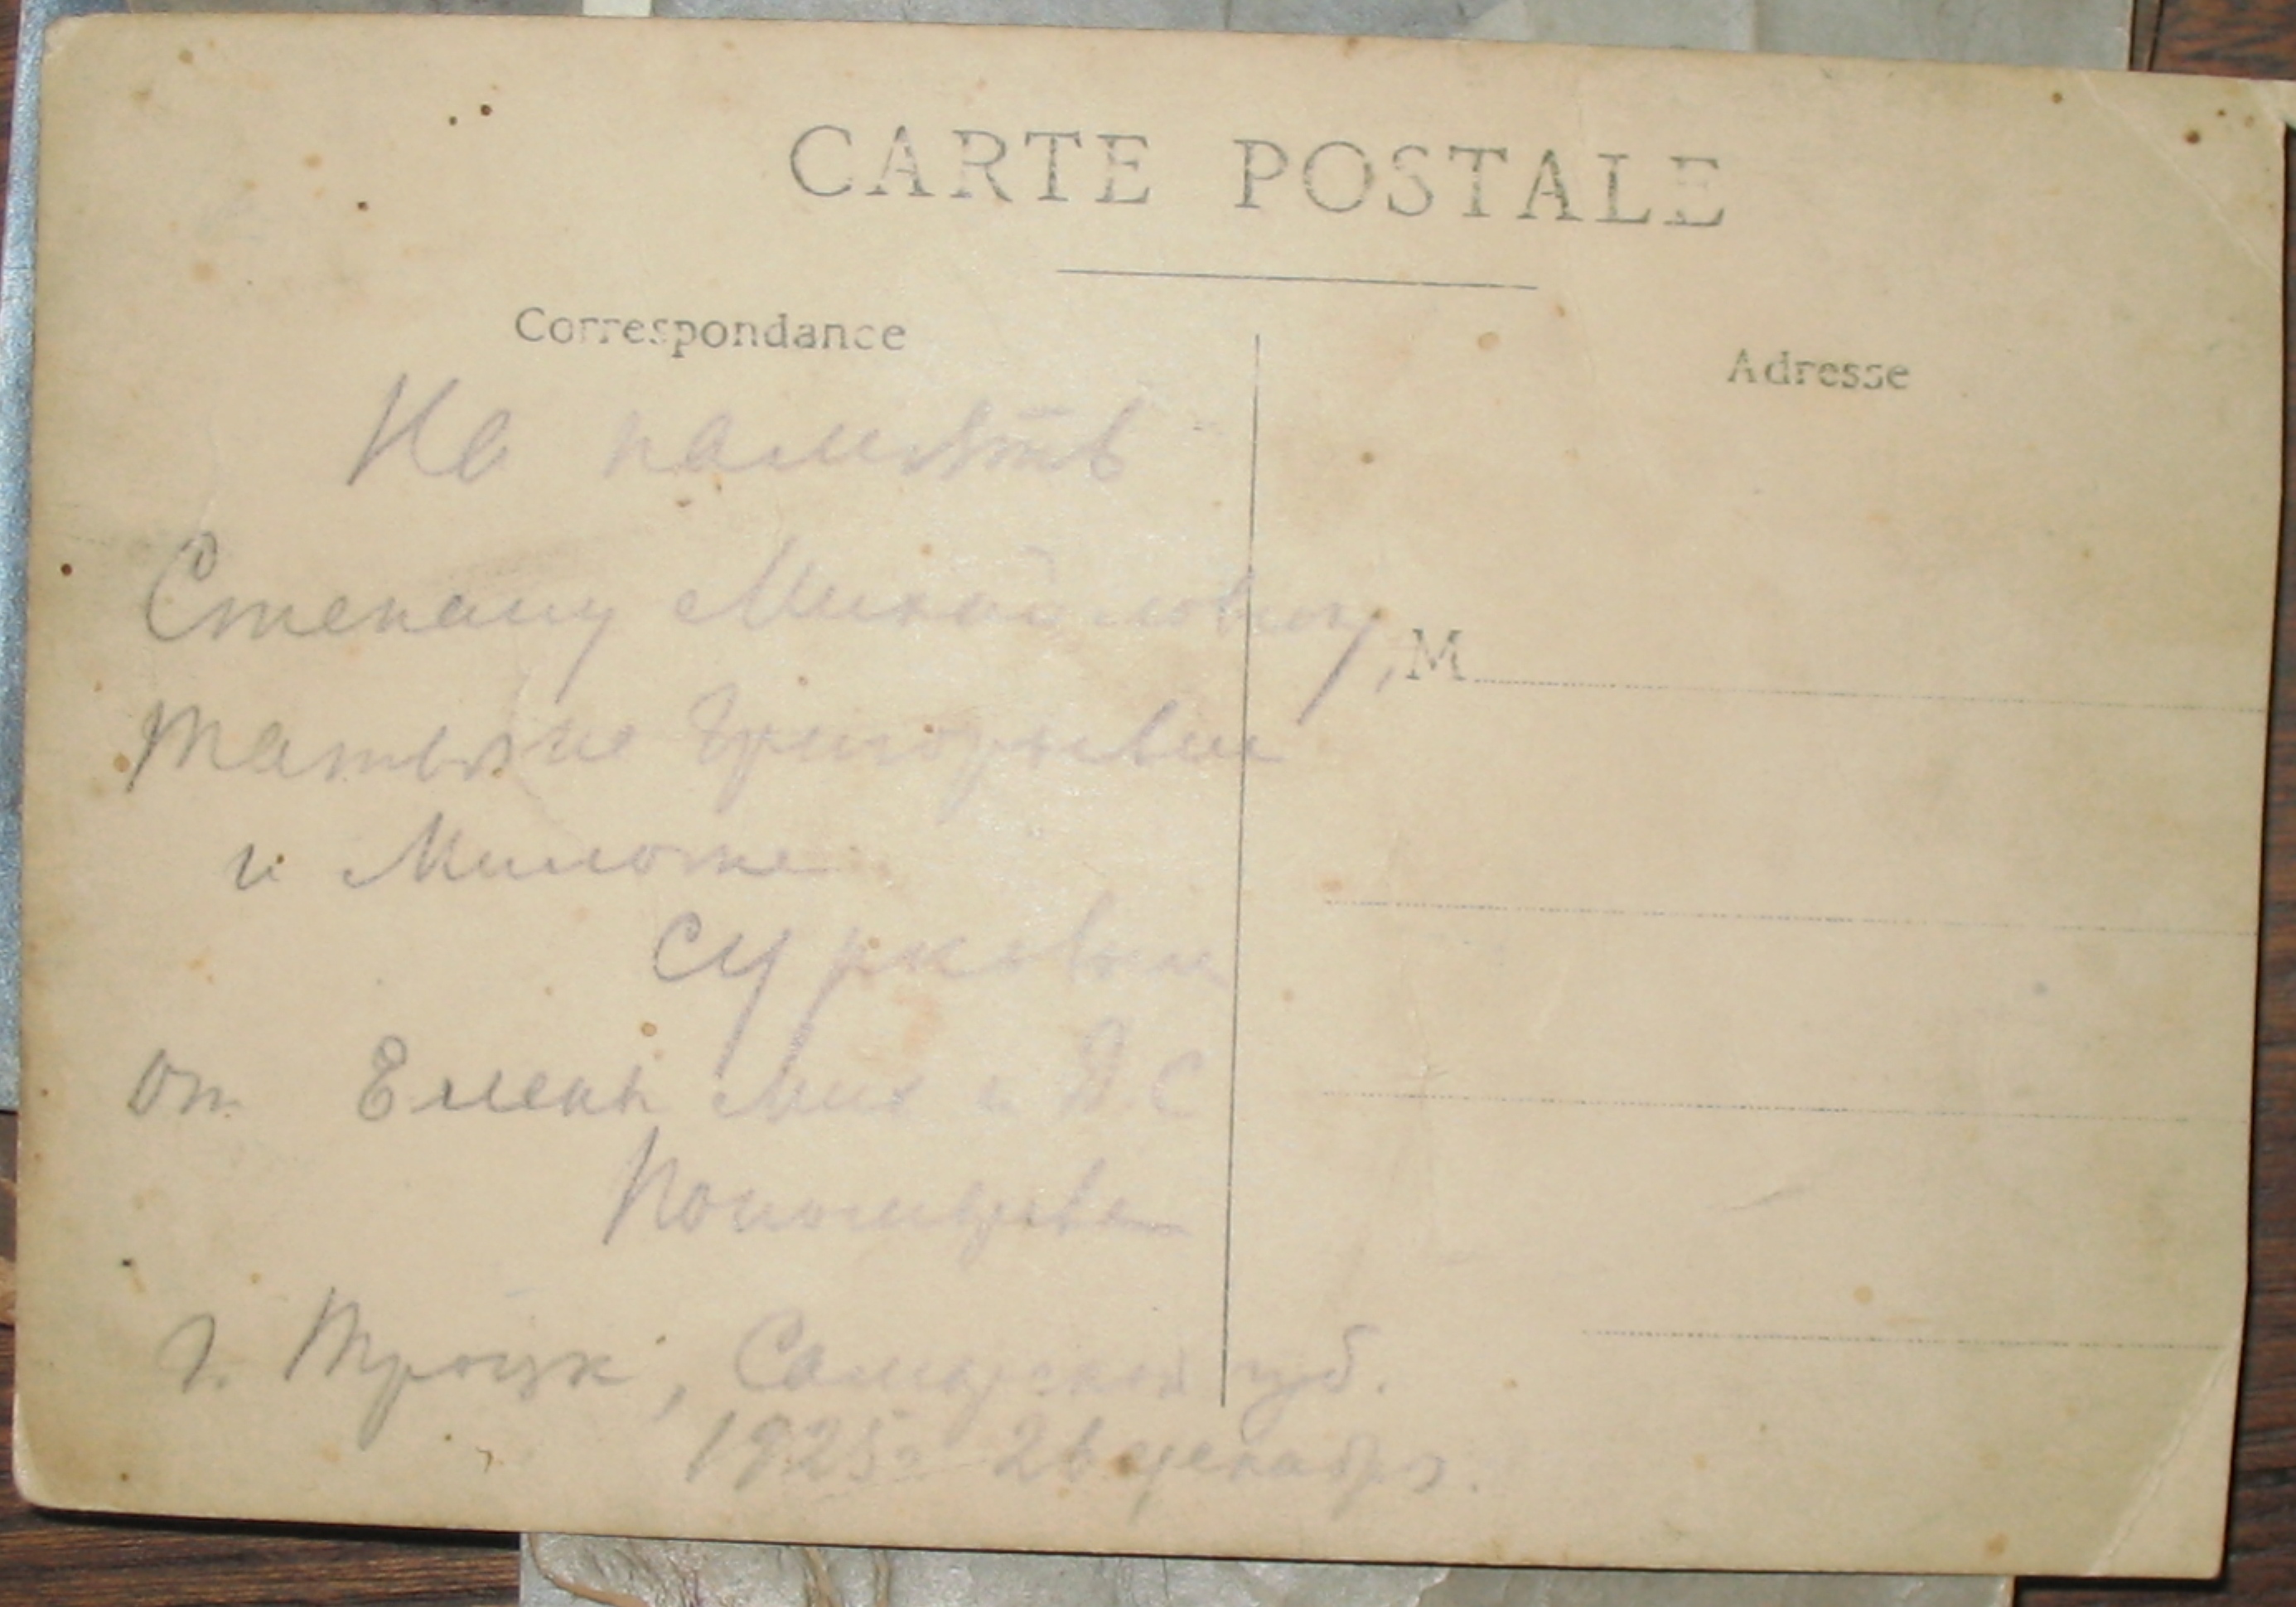 CARTE POSTALE
Correspondance
Adresse
На память
Степану Михайловичу,
М
Татьяне Григорьевне
и Милочке
Сурковым
от Елены Мих и Я. С
Пономаревы
г. Троцк, Самарской губ.
1925 г 26 декабря.